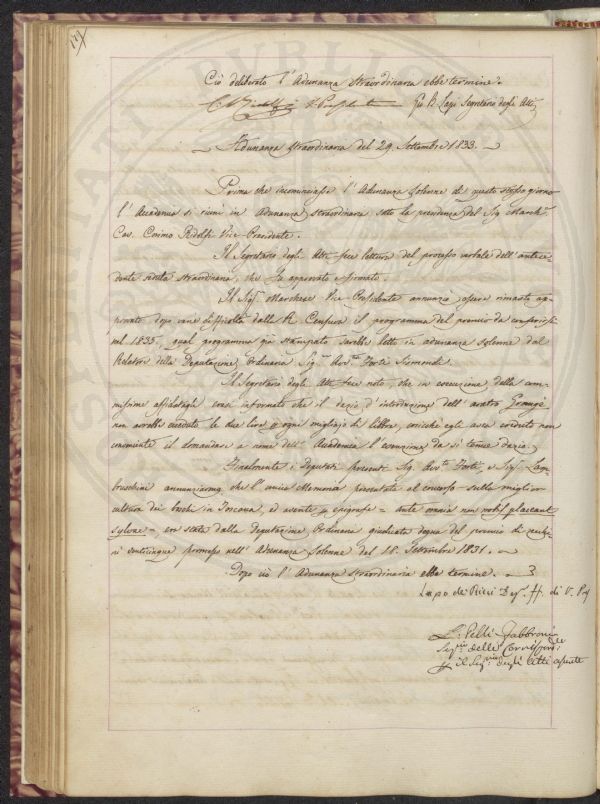 171
Ciò deliberato l'Adunanza Straordinaria ebbe termine.
C. Ridolfi V. Presidente Gio B. Lapi Segretario degli Atti
Adunanza Straordinaria del 29. Settembre 1833.
Prima che incominciasse l'Adunanza solenne di questo stesso giorno
l'Accademia si riunì in Adunanza Straordinaria sotto la presidenza del Sig. March.
Cav. Cosimo Ridolfi Vice-Presidente.
Il Segretario degli Atti fece lettura del processo verbale dell'antece-
dente seduta straordinaria, che fu approvato e firmato.
Il Sig. Marchese Vice-Presidente annunziò essere rimasto ap-
provato dopo varie difficoltà dalla R. Censura il programma del premio da conferirsi
nel 1835. qual programma già stampato sarebbe letto in adunanza solenne dal
Relatore della Deputazione Ordinaria Sig. Avv. Forti Sismondi.
Il Segretario degli Atti fece noto, che in esecuzione della com-
missione affidatagli erasi informato che il dazio d'introduzione dell'aratro Grangé
non avrebbe ecceduto le due lire o ogni migliajo di libbre, cosicchè egli avea creduto non
conveniente il domandare a nome dell'Accademia l'esenzione da sì tenue dazio.
Finalmente i Deputati presenti Sig. Avv. Forti, e Sig. Lam-
bruschini annunziarono che l'unica Memoria presentata al concorso sulla miglior
cultura dei boschi in Toscana, ed avente p epigrafe = ante omnia non nobis placeant
sylvae = era stata dalla Deputazione Ordinaria giudicata degna del premio di zecchi-
ni venticinque promesso nell'Adunanza Solenne del 18. Settembre 1831.
Dopo ciò l'Adunanza straordinaria ebbe termine.
Lapo de Ricci Dep. ff. di V. P.
L. Pelli Fabbroni
Seg.rio delle Corrispond.
p il Seg.rio degli Atti assente